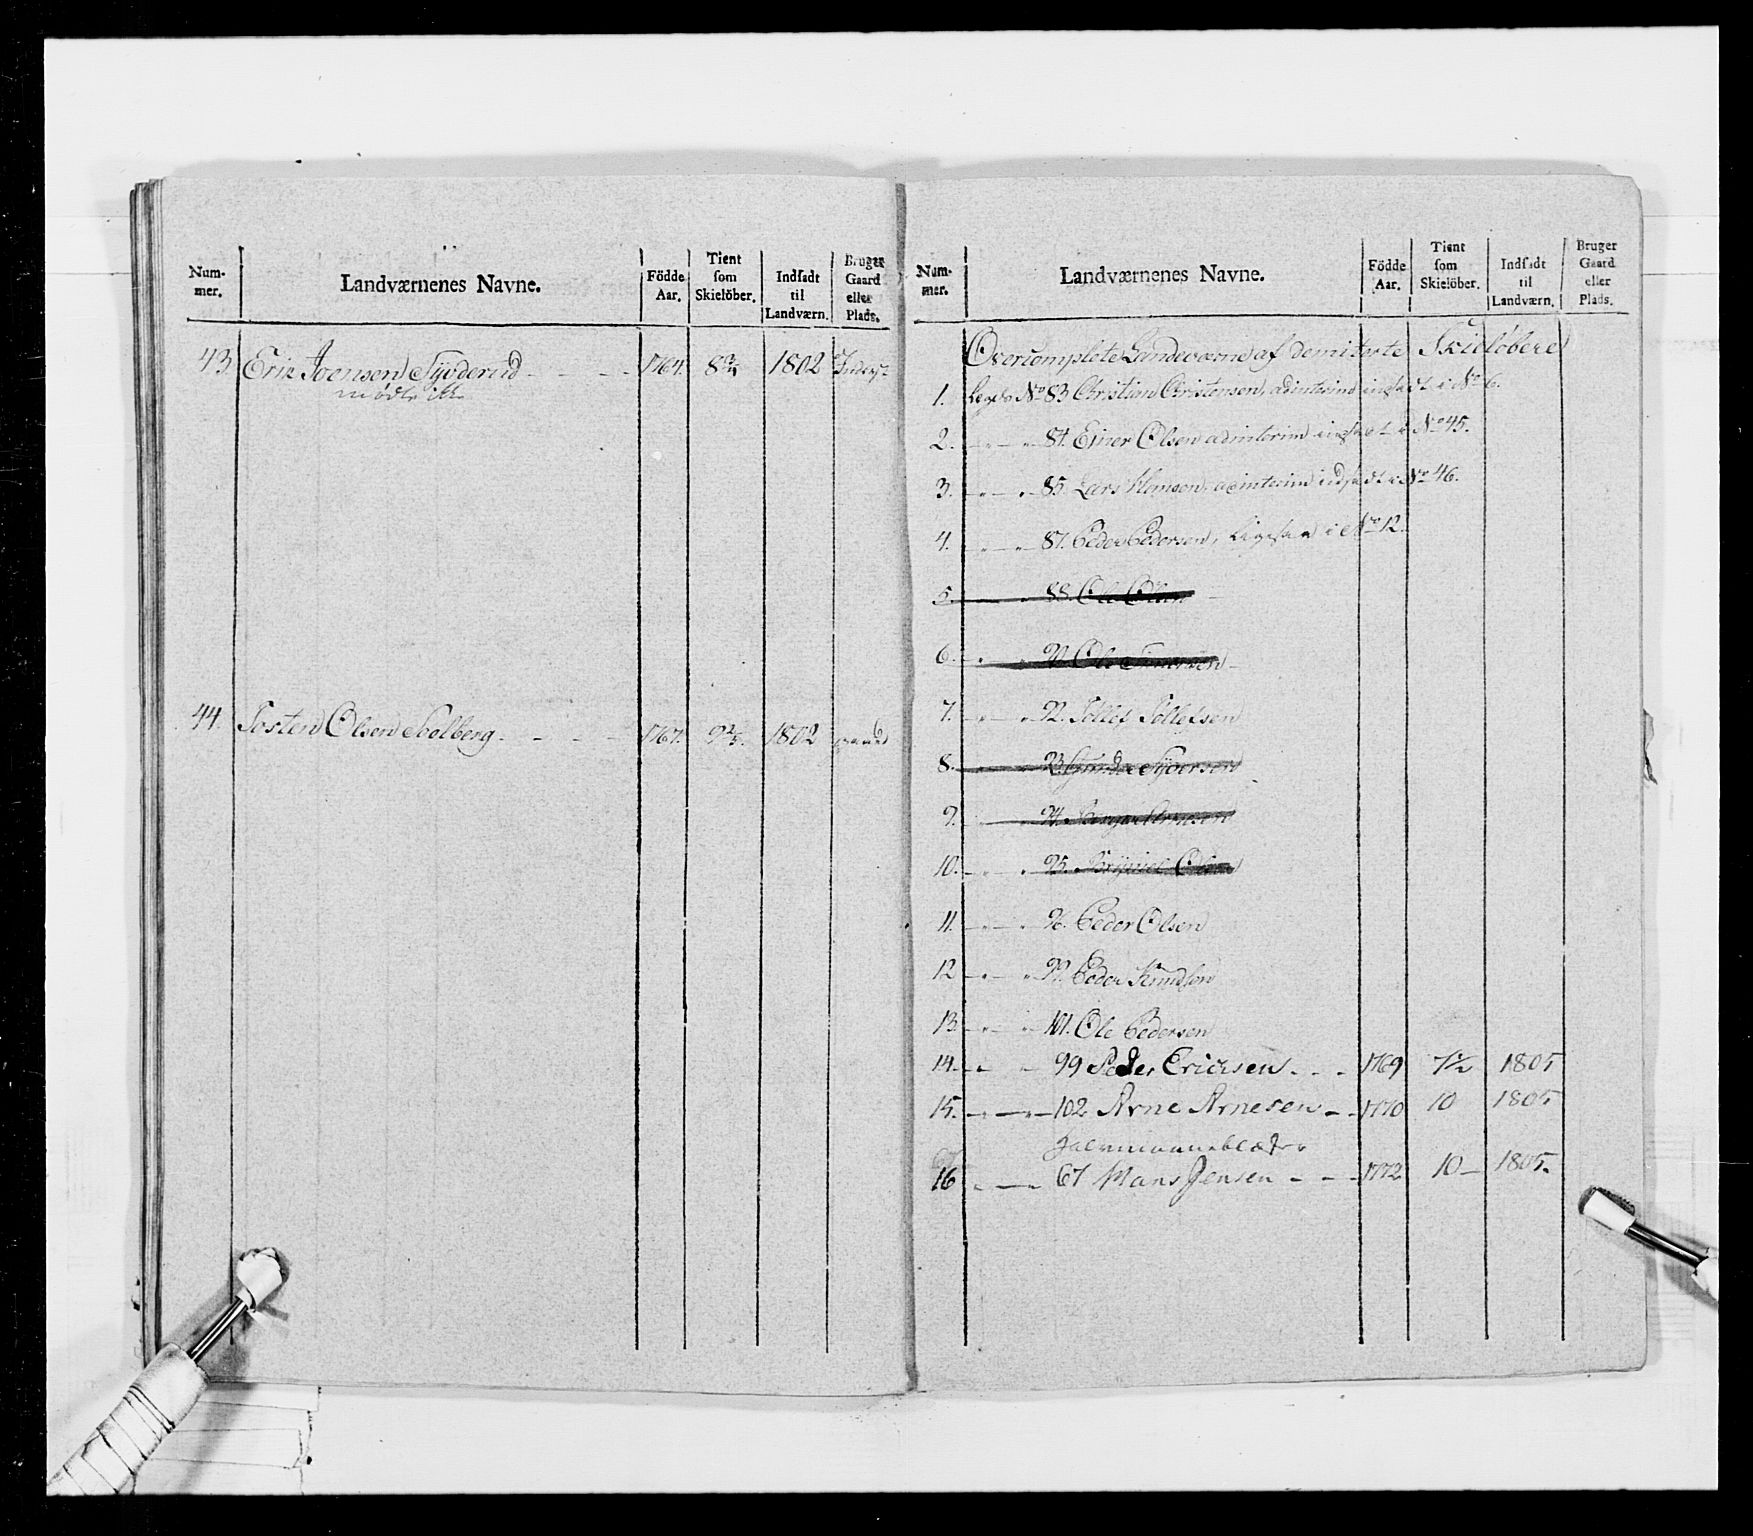 Num-
mer.
Landværnenes Navne.
Födde
Aar.
Tient
som
Skielöber.
Indsadt
til
Landværn.
Bruger
Gaard
eller
Plads.
43 Erik Joensen Syvderud - - - 1764. 8 3/4 1802
mödte ikke
44. Tosten Olsen Solberg - - - 1767. 9 2/3. 1802 gaard
Num-
mer.
Landværnenes Navne.
Födde
Aar.
Tient
som
Skielöber.
Indsadt
til
Landværn.
Bruger
Gaard
eller
Plads.
Overcomplete Landeværne af demiterte Skielöbere
1. Lægds No 83 Christian Christensen, adinterim indsadt i No 6.
2. - " - " 84. Einer Olsen adinterim indsadt i No 45.
3. - " - " 85. Lars adinterim indsadt i No 46.
4. - " - " 87. Peder Pedersen, ligesaa i No 12.
5. - " 88. Ole Olsen
6. - " - " Ole
7. - " - " 92. Tollef Tollefsen
8. - " - " 93. Gunder Syversen
9. - " - " 94. Arnesen
10. - " - " 95. Olsen
11. - " - " 96. Peder Olsen
12 - " - " 97. Peder Knudsen
13. - " - " 101. Ole Pedersen
14. - " - 99 Peder Ericksen - - - 1769 7 1/2 1805
15. - " - " - 102 Arne Arnesen - - 1770 10 1805
16 - " - 67 Hans Jensen - - - 1772 10 - 1805.